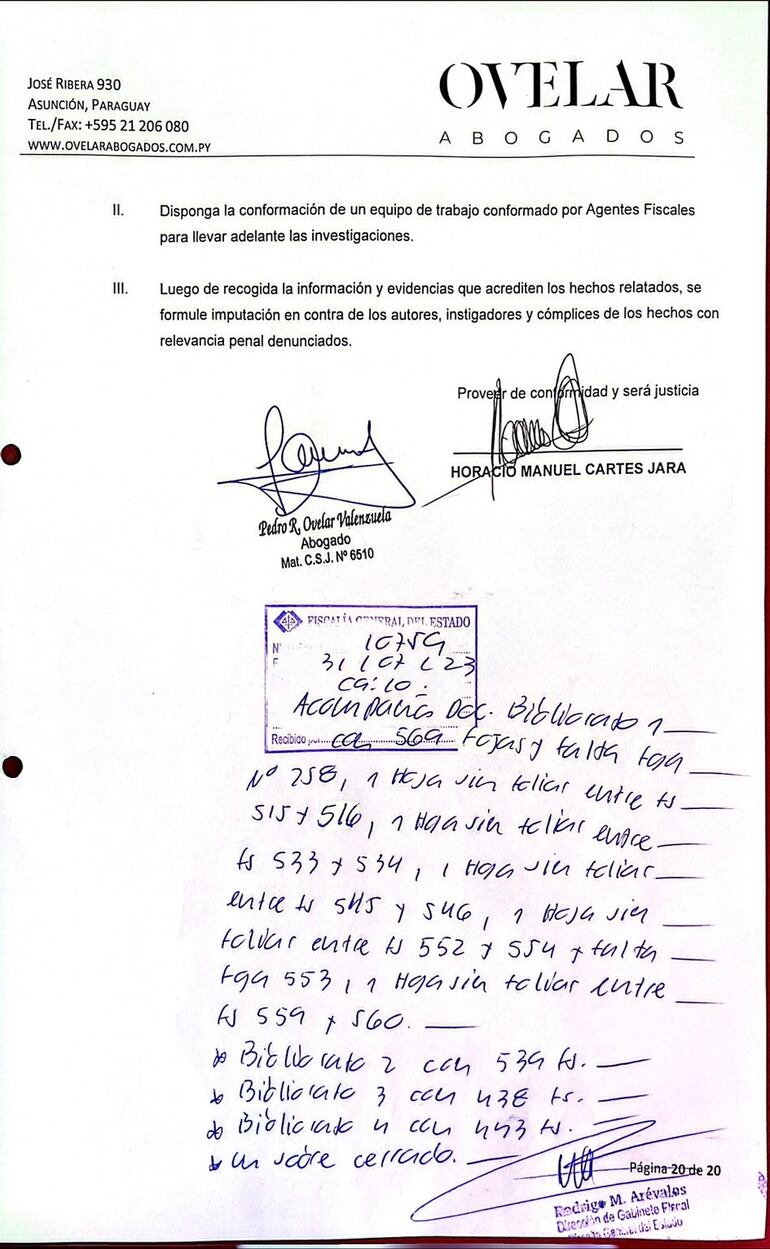 JOSÉ RIBERA 930
ASUNCIÓN, PARAGUAY
TEL./FAX: +595 21 206 080
WWW.OVELARABOGADOS.COM.PY
OVELAR
ABOGADOS
II. Disponga la conformación de un equipo de trabajo conformado por Agentes Fiscales
para llevar adelante las investigaciones.
III. Luego de recogida la información y evidencias que acrediten los hechos relatados, se
formule imputación en contra de los autores, instigadores y cómplices de los hechos con
relevancia penal denunciados.
Proveer de conformidad y será justicia
HORACIO MANUEL CARTES JARA
Pedro R. Ovelar Valenzuela
Abogado
Mat. C.S.J. Nº 6510
FISCALÍA GENERAL DEL ESTADO
N° 10759
F 31/07/23
09:10.
Acompaña Doc. Bibliorato 1
Recibido por con 569 fojas y falta foja
Nº 258, 1 Hoja sin foliar entre fs
515 y 516, 1 Hoja sin foliar entre
fs 533 y 534, 1 Hoja sin foliar
entre fs 545 y 546, 1 Hoja sin
foliar entre fs 552 y 554 y falta
foja 553, 1 Hoja sin foliar entre
fs 559 y 560.
Bibliorato 2 con 539 fs.
Bibliorato 3 con 438 fs.
Bibliorato 4 con 443 fs.
un sobre cerrado.
Página 20 de 20
Rodrigo M. Arévalos
Dirección de Gabinete Fiscal
Fiscalía General del Estado